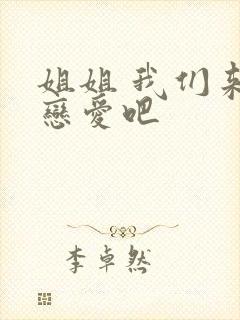 姐姐我们来
戀愛吧
李卓然